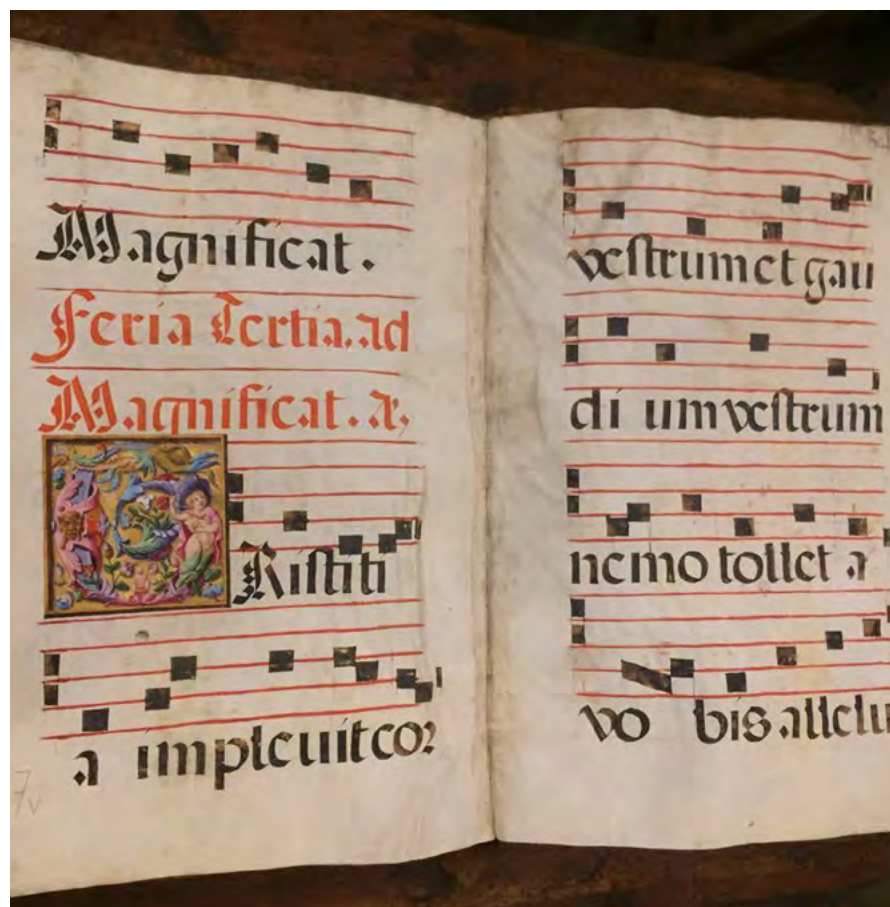 Magnificat.
Feria Tertia. ad
Magnificat. æ.
TRistiti
a impleuit cor
vestrum et gau
di um vestrum
nemo tollet a
vo bis allelu
7v